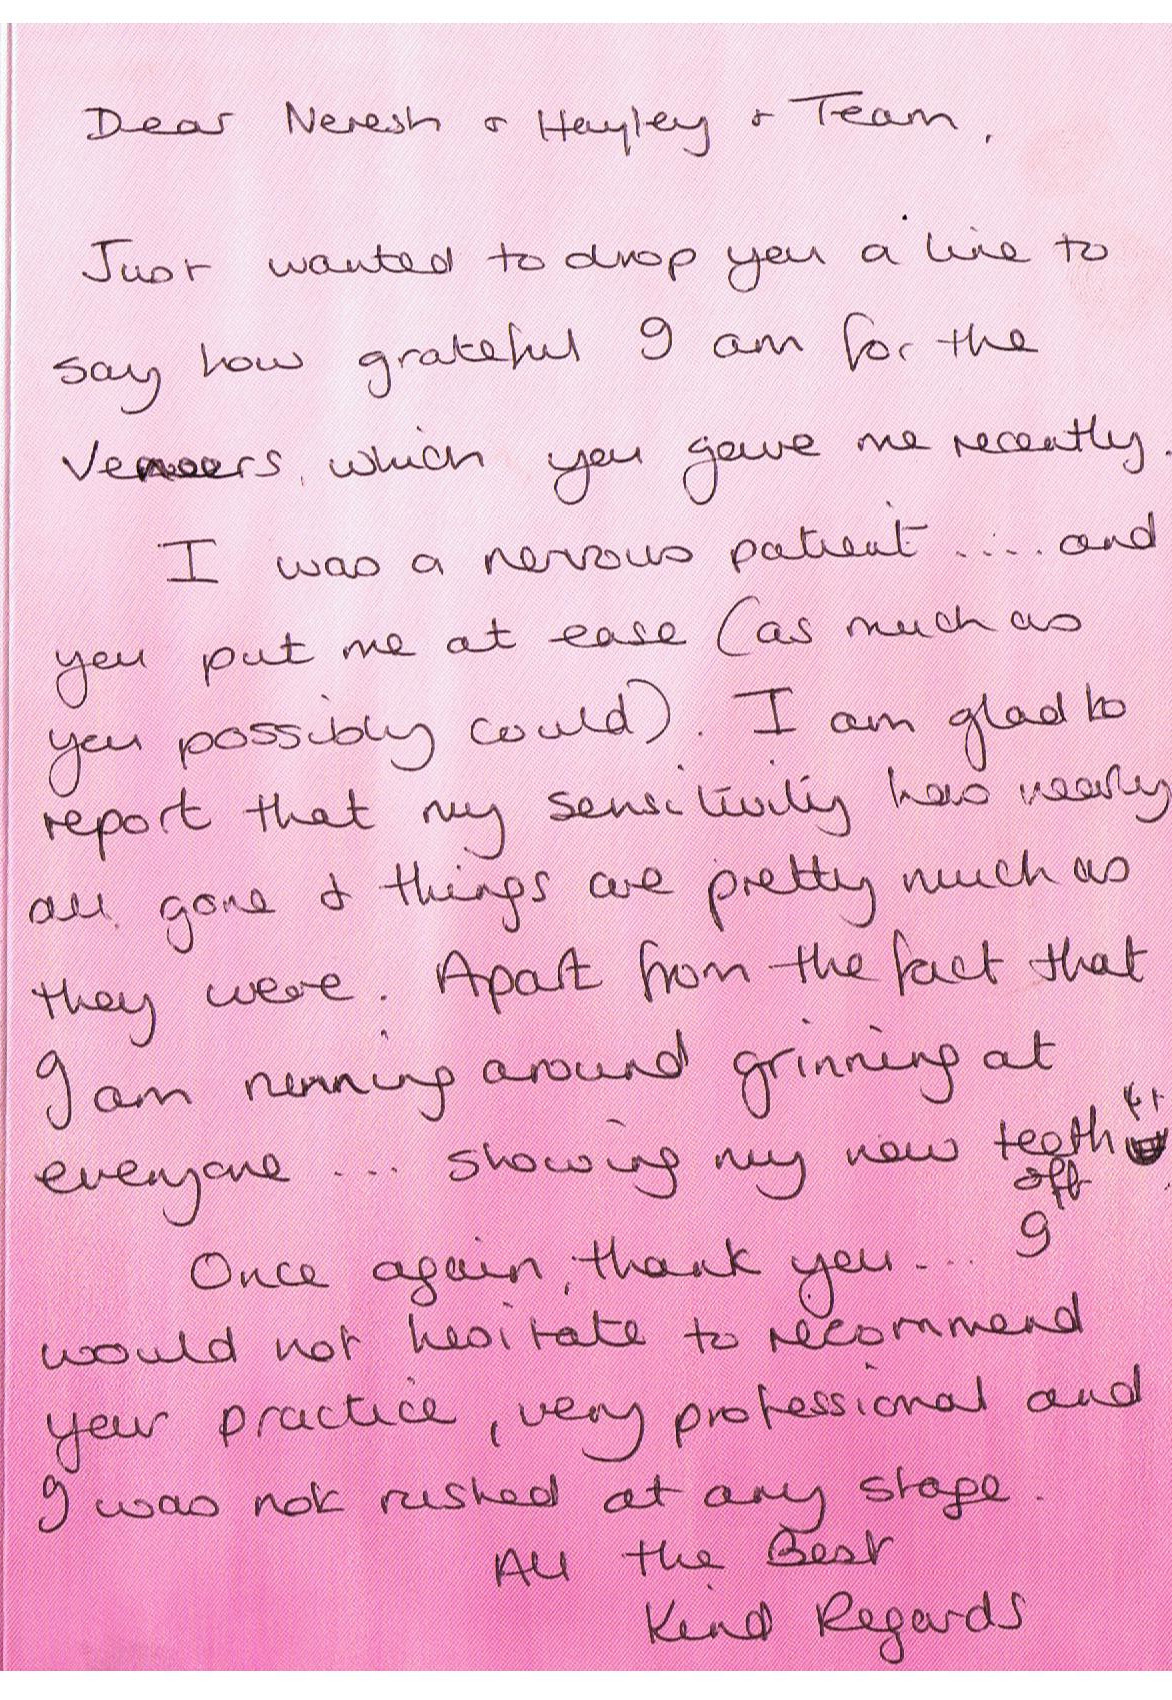 Dear Neresh & Hayley & Team,
Just wanted to drop you a line to
say how grateful I am for the
Veneers, which you gave me recently.
I was a nervous patient .... and
you put me at ease (as much as
you possibly could). I am glad to
report that my sensitivity has nearly
all gone & things are pretty much as
they were. Apart from the fact that
I am running around grinning at
everyone ... showing my new teeth
off
Once again, thank you... I
would not hesitate to recommend
your practice, very professional and
I was not rushed at any stage.
All the Best
Kind Regards